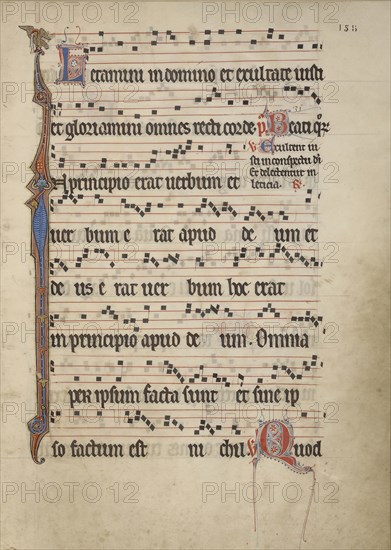 158
Letamini in domino et exultate iusti
et gloriamini omnes recti corde. p̄. Beati q̄r̄
V Exultent iu
sti in conspectu di
Et delectentur in
leticia. R
In principio erat uerbum et
uer bum e rat apud de um et
de us e rat uer bum hoc erat
in principio apud de um. Omnia
per ipsum facta sunt et sine ip
so factum est ni chil. V Quod
PHOTO 12